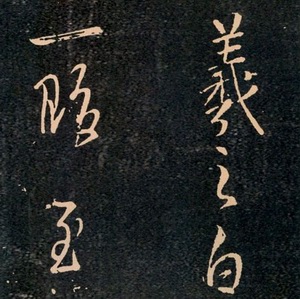 羲之白
一
至